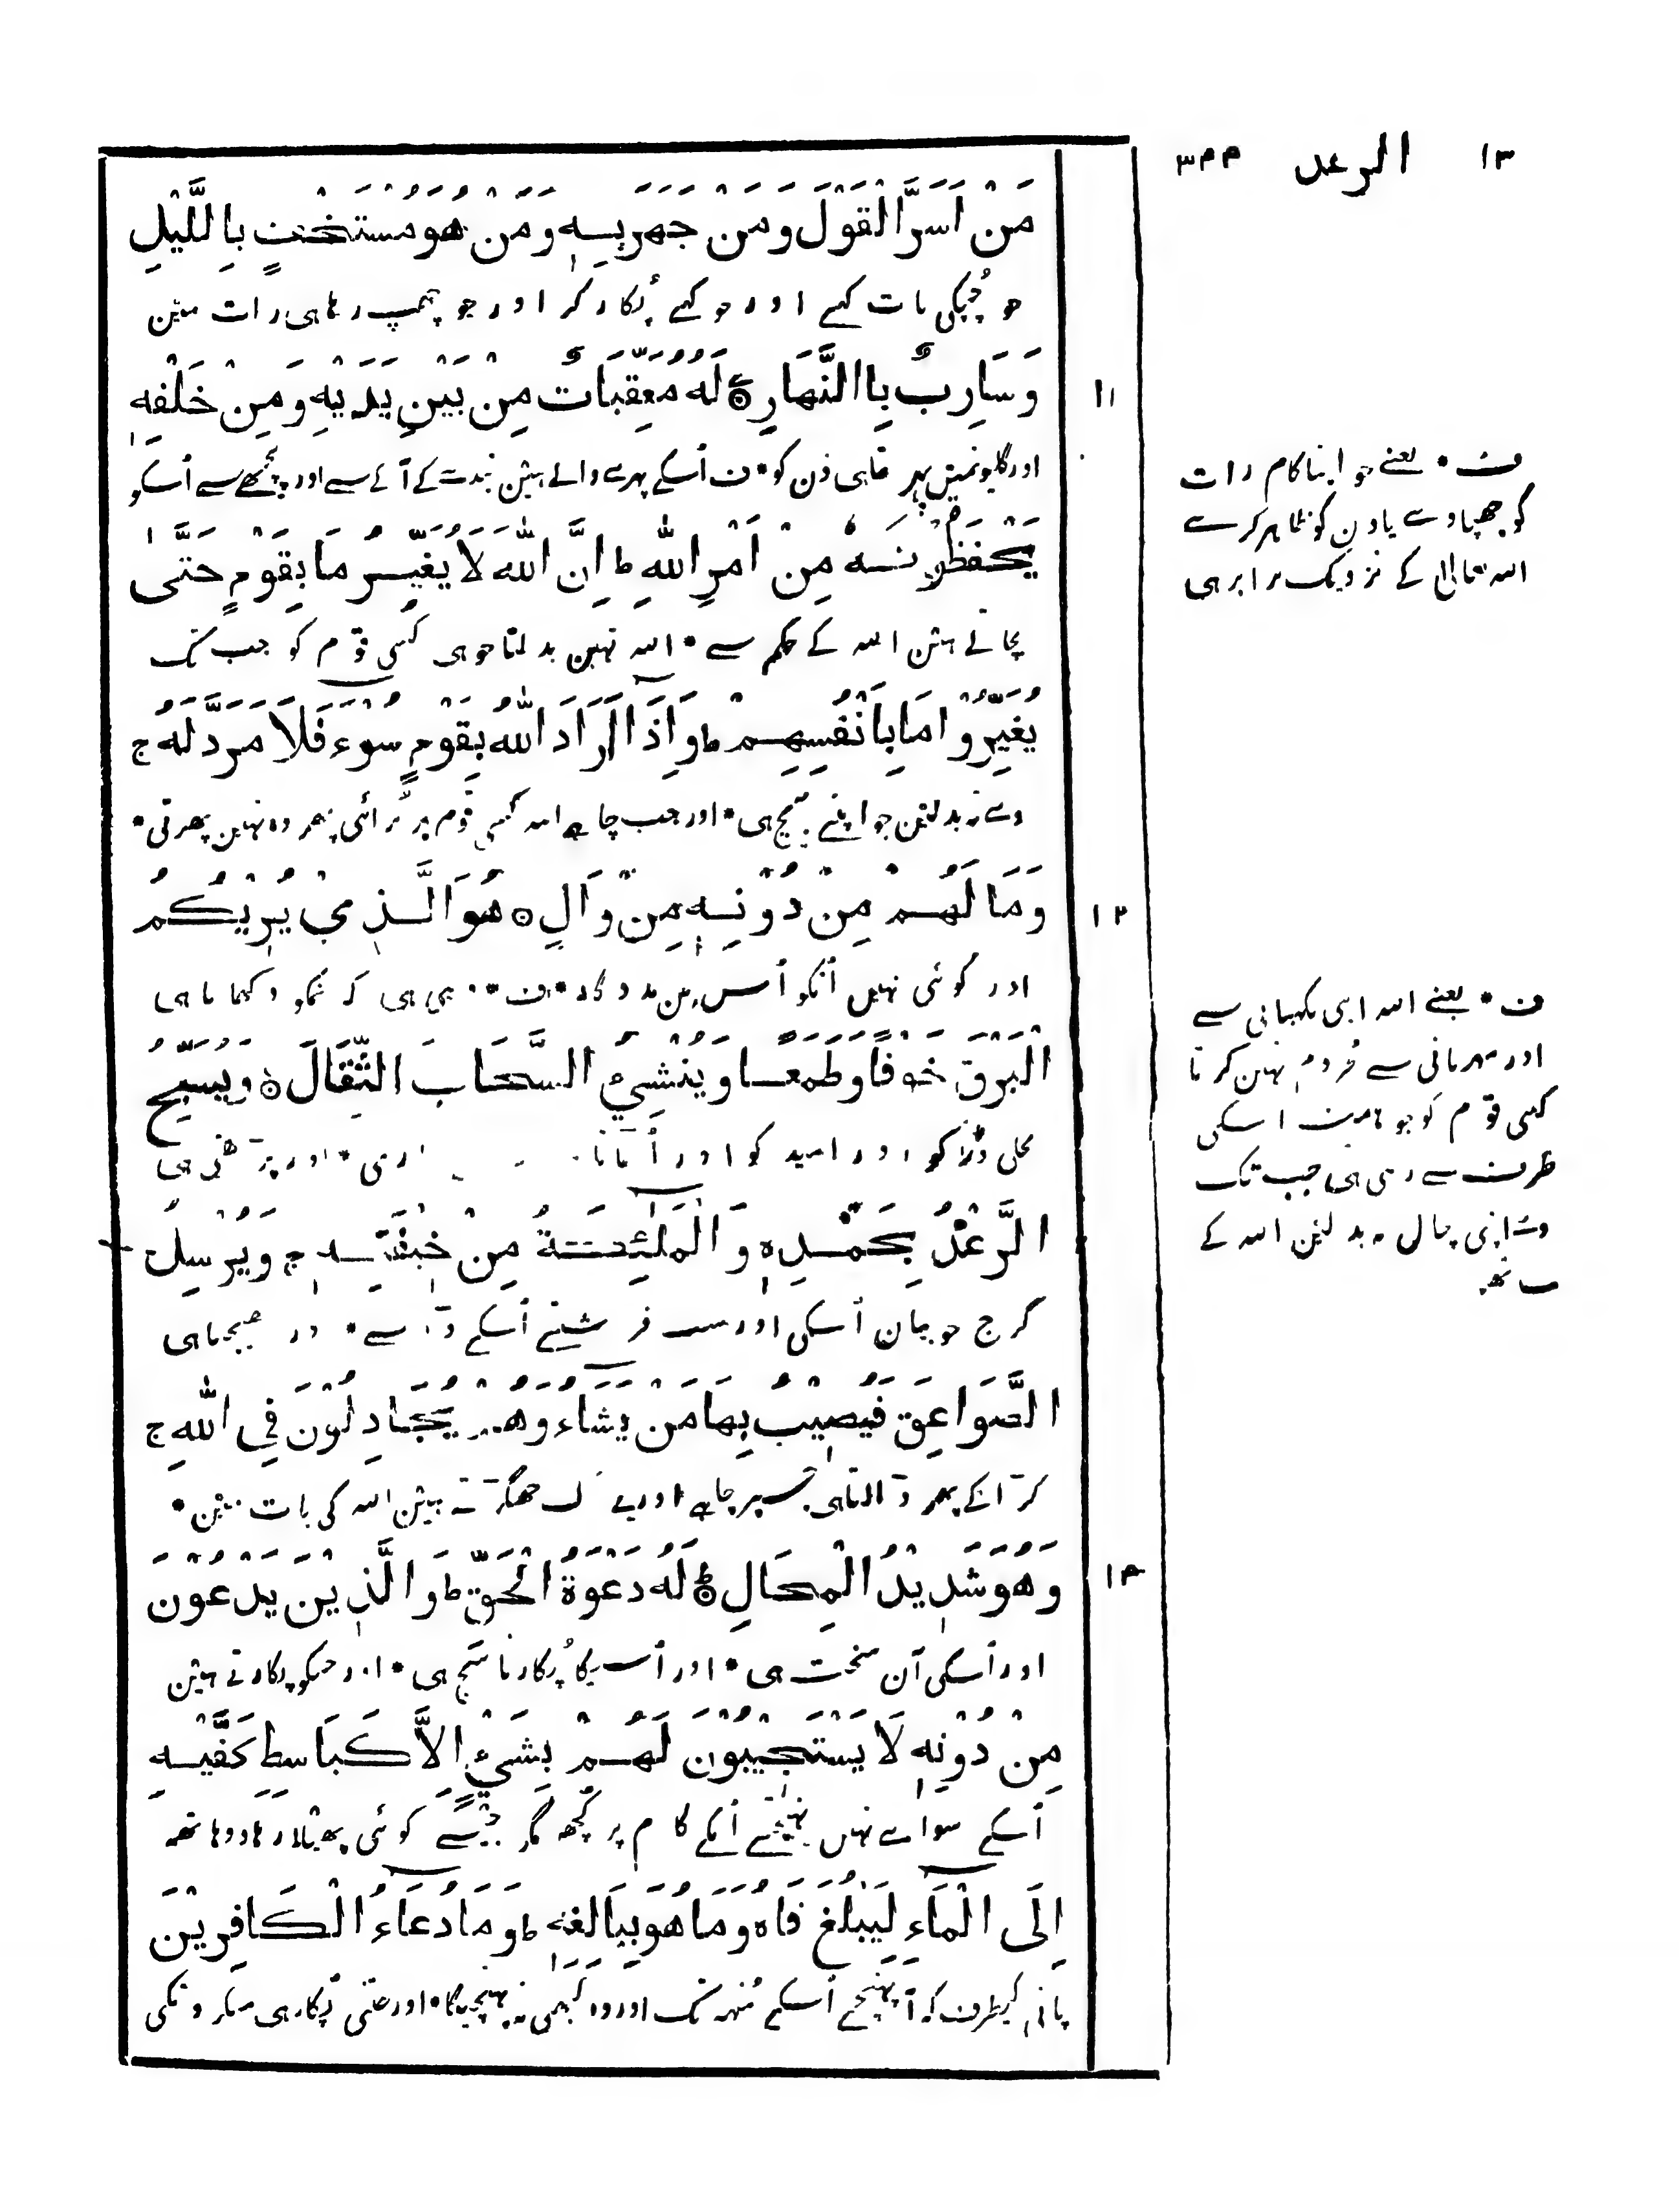 ١٣ الرعد ٣٣٣
مَنْ اَسَرَّ الْقَوْلَ وَمَنْ جَهَرَ بِهٖ وَمَنْ هُوَ مُسْتَخْفٍ بِالَّلیْلِ
جو چُپکی بات کہے اور جو کہے پُکار کر اور جو چھپ رہا ہی رات مین
وَسَارِبٌ بِاالنَّهَارِ ۝ لَهُ مُعَقِّبَاتٌ مِنْ بَیْنِ یَدَیْهِ وَمِنْ خَلْفِهٖ
١١
اور گلیونمین پهر تاہی دن کو * ف اُسکے پہرے والے ہین بندے کے آگے سے اور پیچھے سے اُسکو
یَحْفَظُوْنَهُ مِنْ اَمْرِ اللّٰهِ ط اِنَّ اللّٰهَ لَا یُغَیِّرُ مَا بِقَوْمٍ حَتَّیٰ
بچاتے ہین اللہ کے حکم سے * اللہ نہین بدلتا جو ہی کسی قوم کو جب تک
یُغَیِّرُوْا مَا بِاَنْفُسِهِمْ ط وَاِذَا اَرَادَ اللّٰهُ بِقَوْمٍ سُوْٓءً فَلَا مَرَدَّ لَهُ ج
وے نہ بدلین جو اپنے بیچ ہی * اور جب چاہے اللہ کسی قوم پر بُرائی پھر وہ نہین پھرتی *
وَمَا لَهُمْ مِنْ دُوْنِهٖ مِنْ وَّالٍ ۝ هُوَ الَّذِیْ یُرِیْکُمُ
١٢
اور کوئی نہین اُنکو اُس بن مددگار * ف * وہی ہی کہ تمکو دکھاتا ہی
الْبَرْقَ خَوْفًا وَطَمَعًا وَیُنْشِئُ السَّحَابَ الثِّقَالَ ۝ وَیُسَبِّحُ
بجلی ڈر کو اور امید کو اور اُٹھاتا بھاری * اور پڑھتی ہی
الرَّعْدُ بِحَمْدِهٖ وَالْمَلٰٓئِکَةُ مِنْ خِیْفَتِهٖ ج وَیُرْسِلُ
گرج خوبیان اُسکی اور سب فرشتے اُسکے ڈر سے * اور بھیجتا ہی
الصَّوَاعِقَ فَیُصِیْبُ بِهَا مَنْ یَشَآءُ وَهُمْ یُجَادِلُوْنَ فِی اللّٰهِ ج
کڑاکے پھر ڈالتا ہی جسپر چاہے اور یے لوگ جھگڑتے ہین اللہ کی بات مین *
وَهُوَ شَدِیْدُ الْمِحَالِ ۝ لَهُ دَعْوَةُ الْحَقِّ ط وَالَّذِیْنَ یَدْعُوْنَ
١٣
اور اُسکی آن سخت ہی * اور اُسیکا پُکارنا سچ ہی * اور جسکو پکارتے ہین
مِنْ دُوْنِهٖ لَا یَسْتَجِیْبُوْنَ لَهُمْ بِشَیْءٍ اِلَّا کَبَاسِطِ کَفَّیْهِ
اُسکے سواے نہین پہنچتے اُنکے کام پر کُچھ مگر جیسے کوئی پھیلا رہا دو ہاتھ
اِلَی الْمَآءِ لِیَبْلُغَ فَاهُ وَمَا هُوَ بِبَالِغِهٖ ط وَمَا دُعَآءُ الْکَافِرِیْنَ
پانی کیطرف کہ آ پہنچے اُسکے مُنہہ تک اور وہ کبھی نہ پہنچیگا * اور جتنی پُکار ہی منکرونکی
ف * یعنے جو اپنا کام رات
کو چھپاوے یا دن کو ظاہر کرے
اللہ تعالیٰ کے نزدیک برابر ہی
ف * یعنے اللہ اپنی نگہبانی سے
اور مہربانی سے محروم نہین کرتا
کسی قوم کو جو ہمیشہ اسکی
طرف سے رہی ہی جب تک
وے اپنی چال نہ بدلین اللہ کے
ساتھ